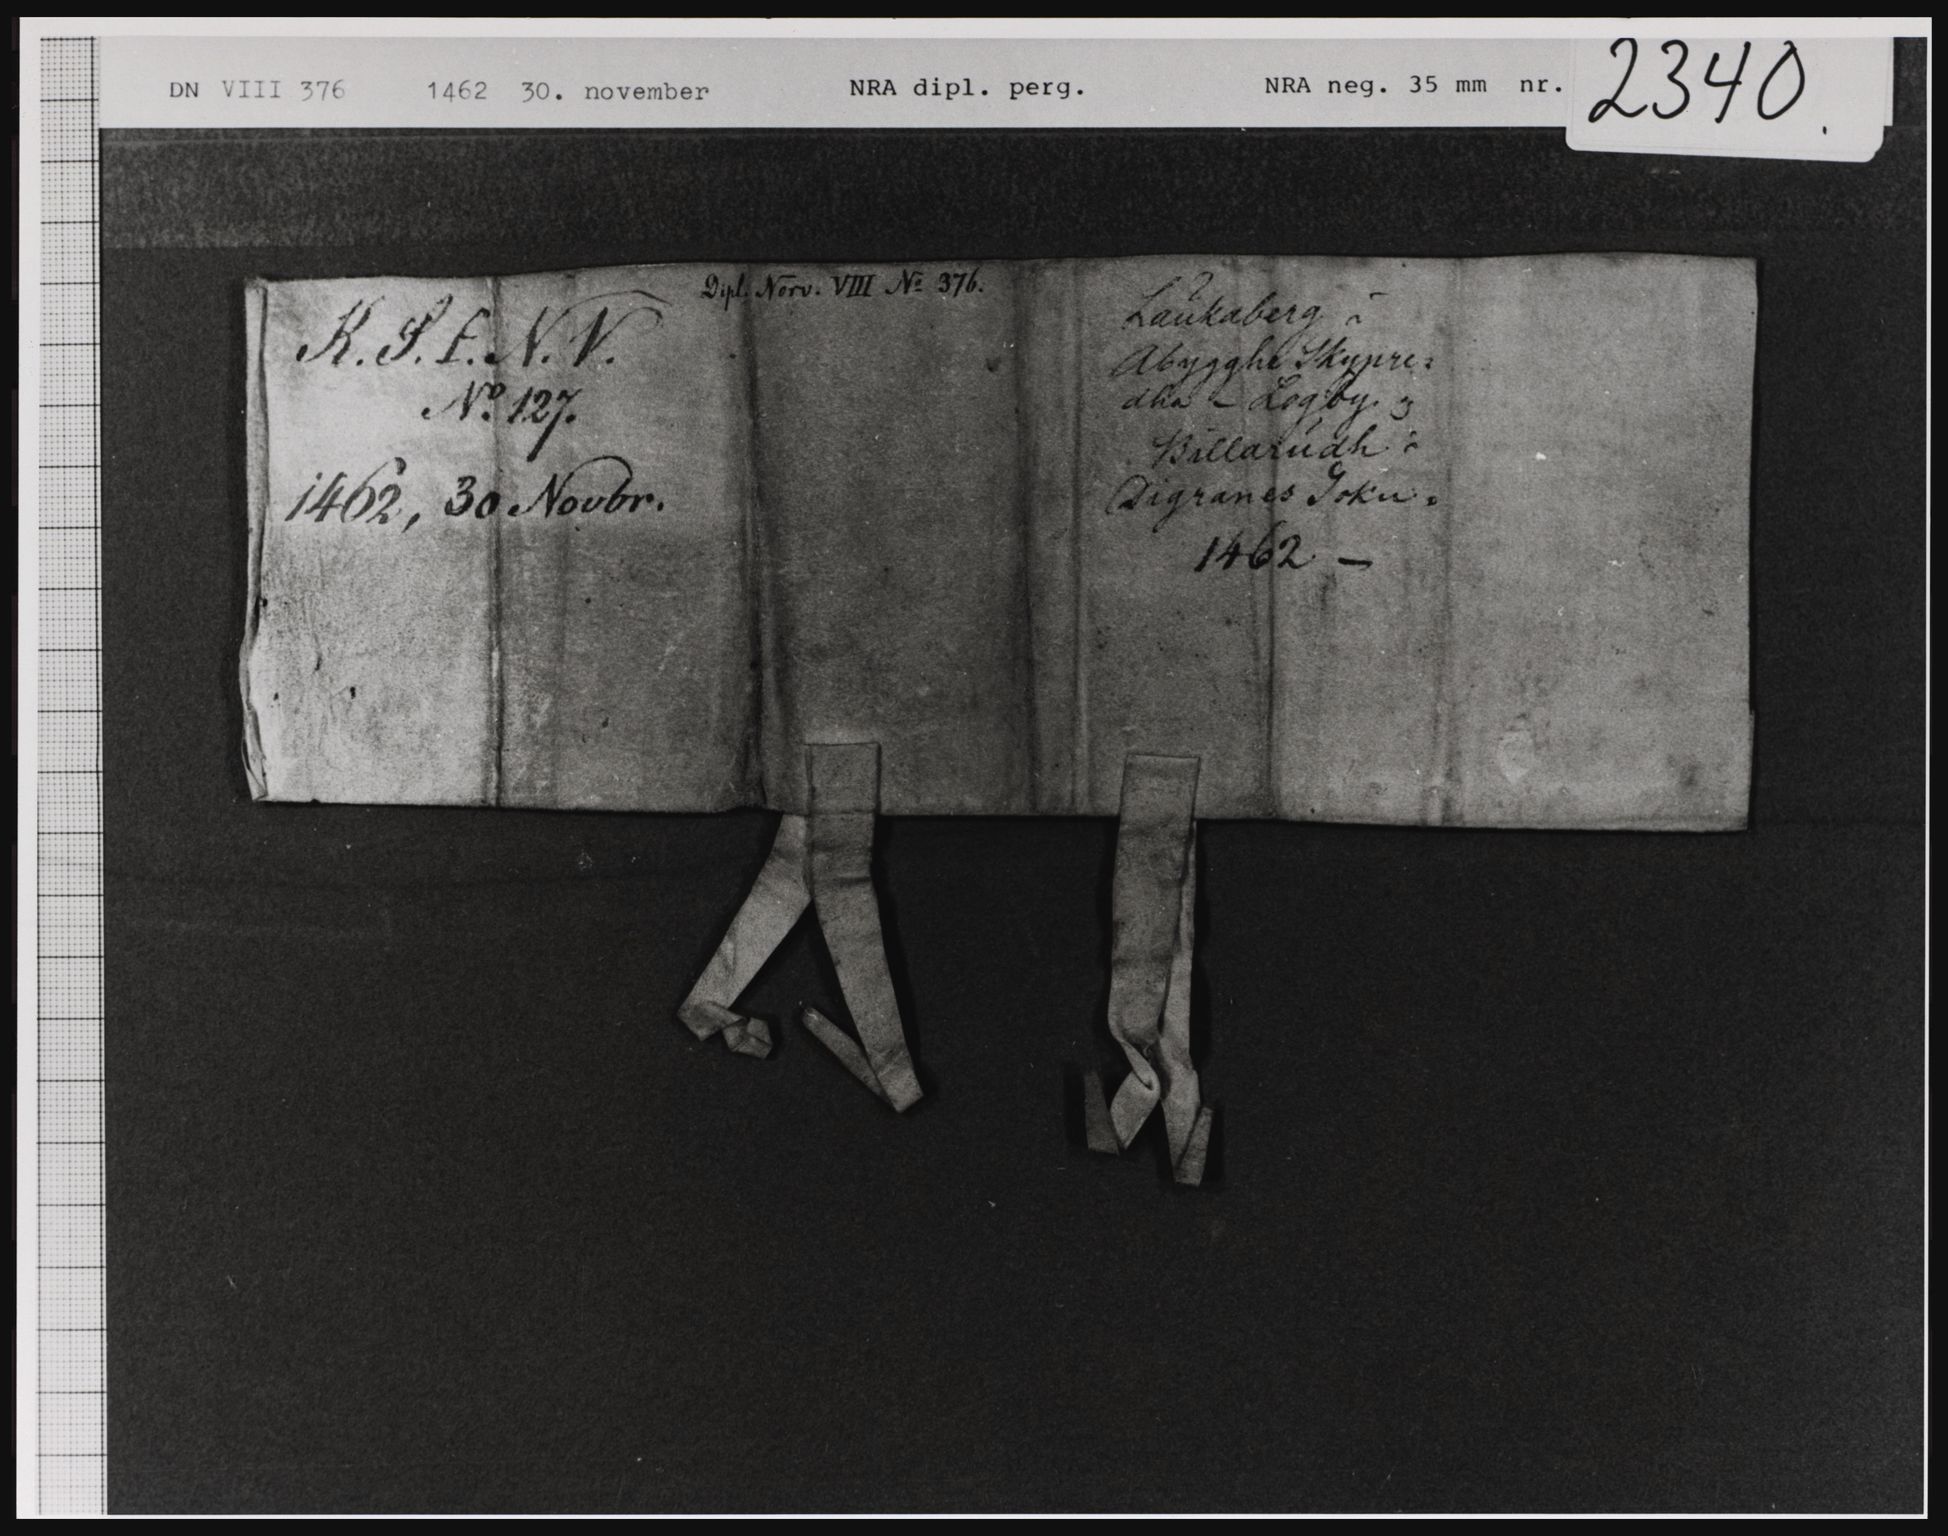 DN VIII 376 1462 30. november NRA dipl. perg. NRA neg. 35 mm nr. 2340.
Dipl. Norv. VIII No 376.
K. S. f. N. V.
No. 127.
1462, 30 Novbr.
Laukaberg i
Abygghe Skypre=
dha - Logby. og
Billarudh i
Digranes Soku.
1462 —